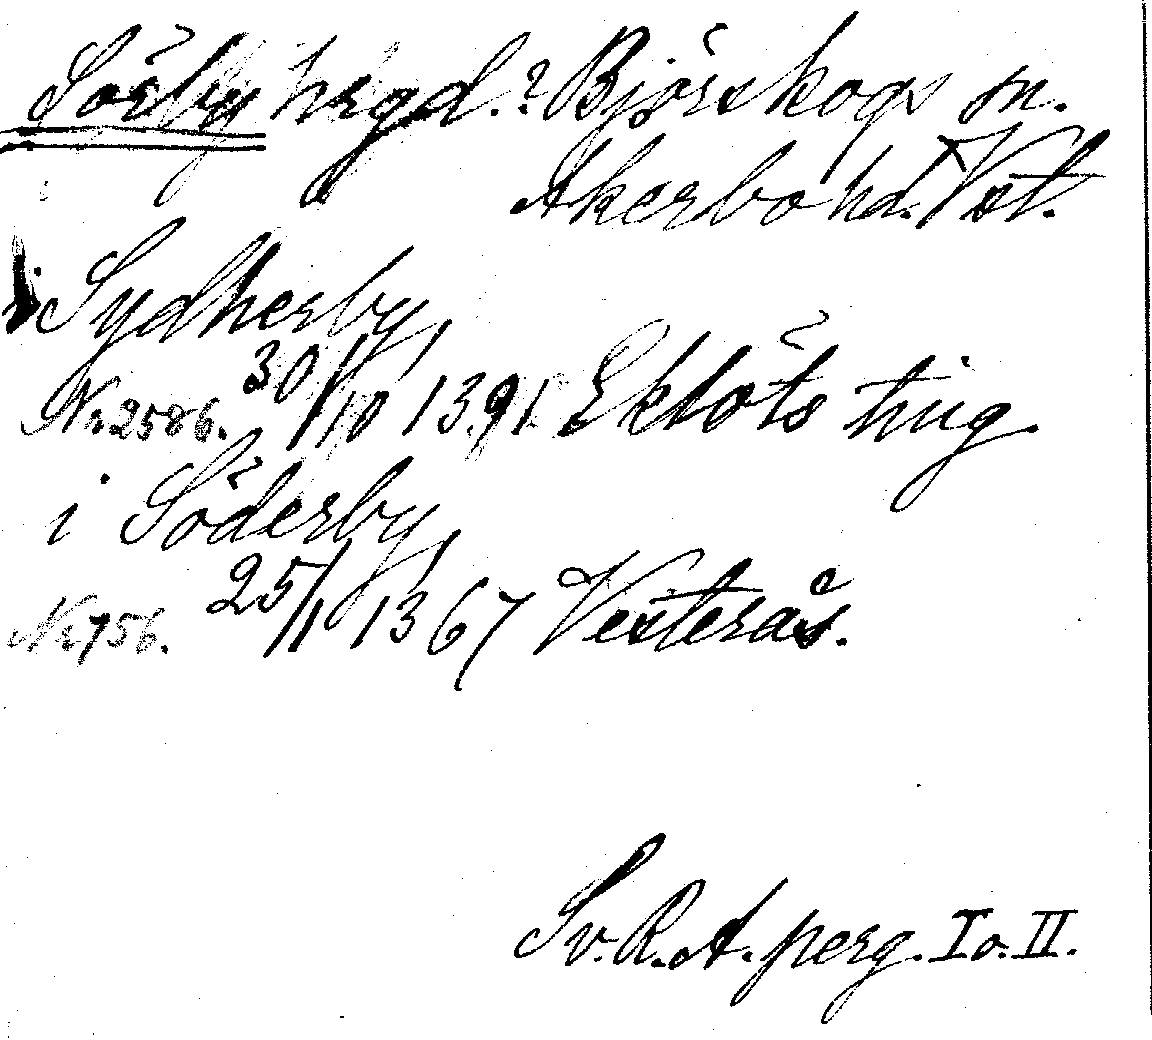 Sörby hrgd.? Björskogs sn.
Åkerbo hd. Vstl.
i Sydherby,
Nr. 2586. 30/10 1391 Eklöts ting.
i Söderby,
Nr 756. 25/1 1367 Vesterås.
Sv. R. A. perg. I o. II.